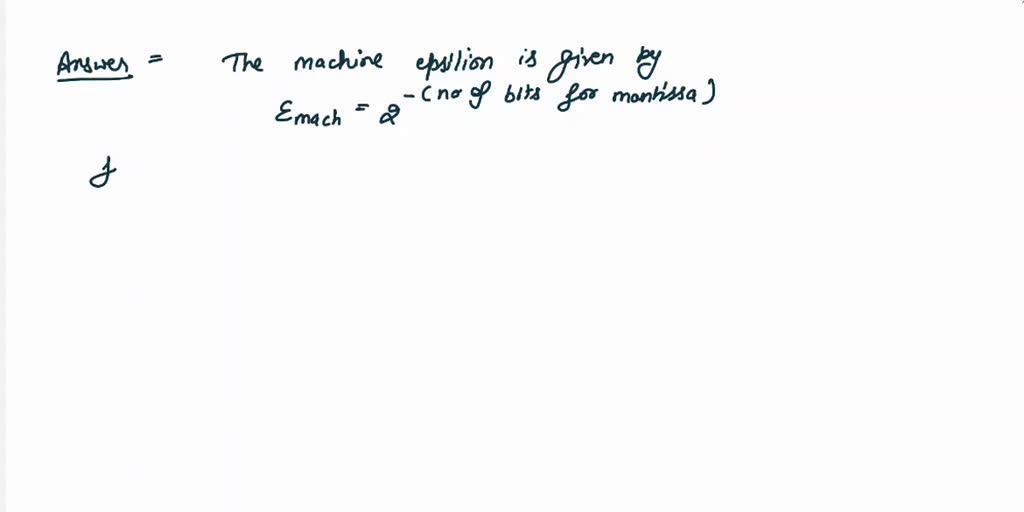 Answer = The machine epsilion is given by
Emach = 2^-(no of bits for mantissa)